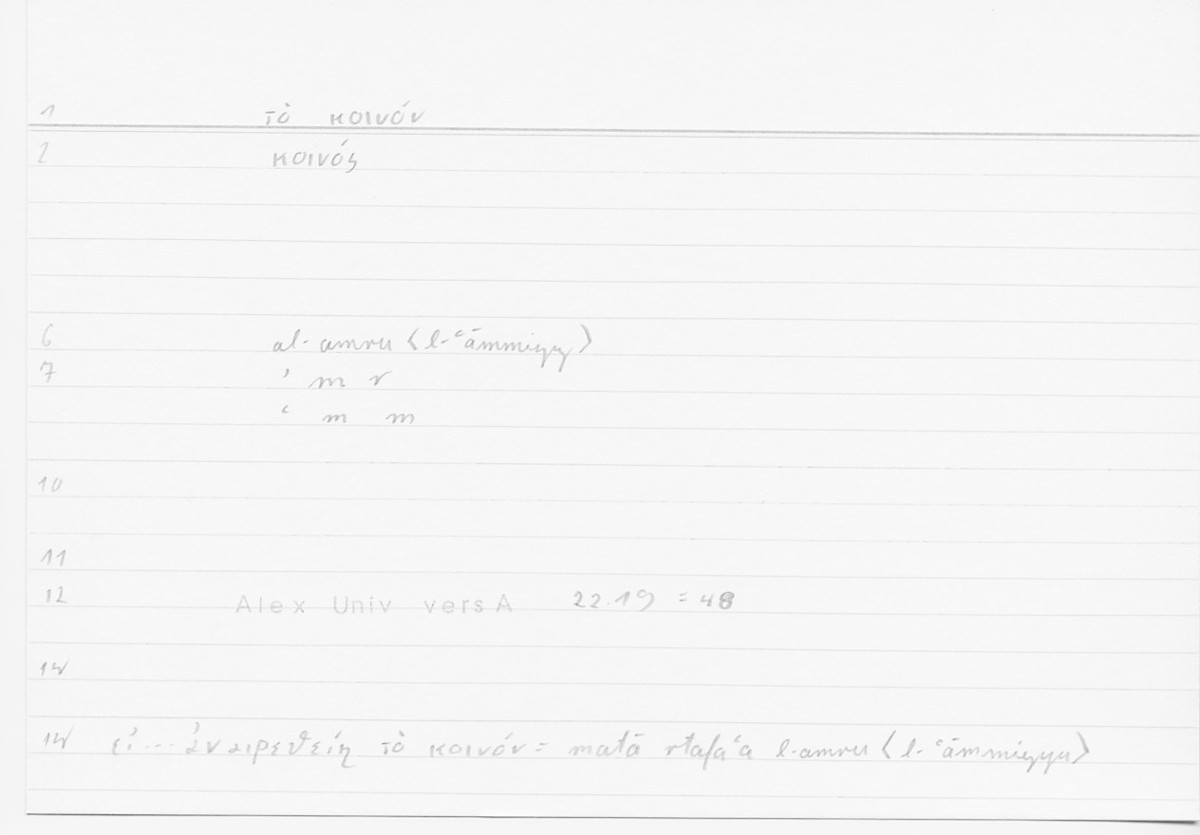 1 τὸ κοινόν
2 κοινός
6 al-amru 〈l-ʿāmmiyy〉
7 ʾ m r
ʿ m m
10
11
12 Alex Univ vers A 22.19 = 48
14
14 εἰ... ἀναιρεθείη τὸ κοινόν = matā rtafaʿa l-amru 〈l-ʿāmmiyyu〉